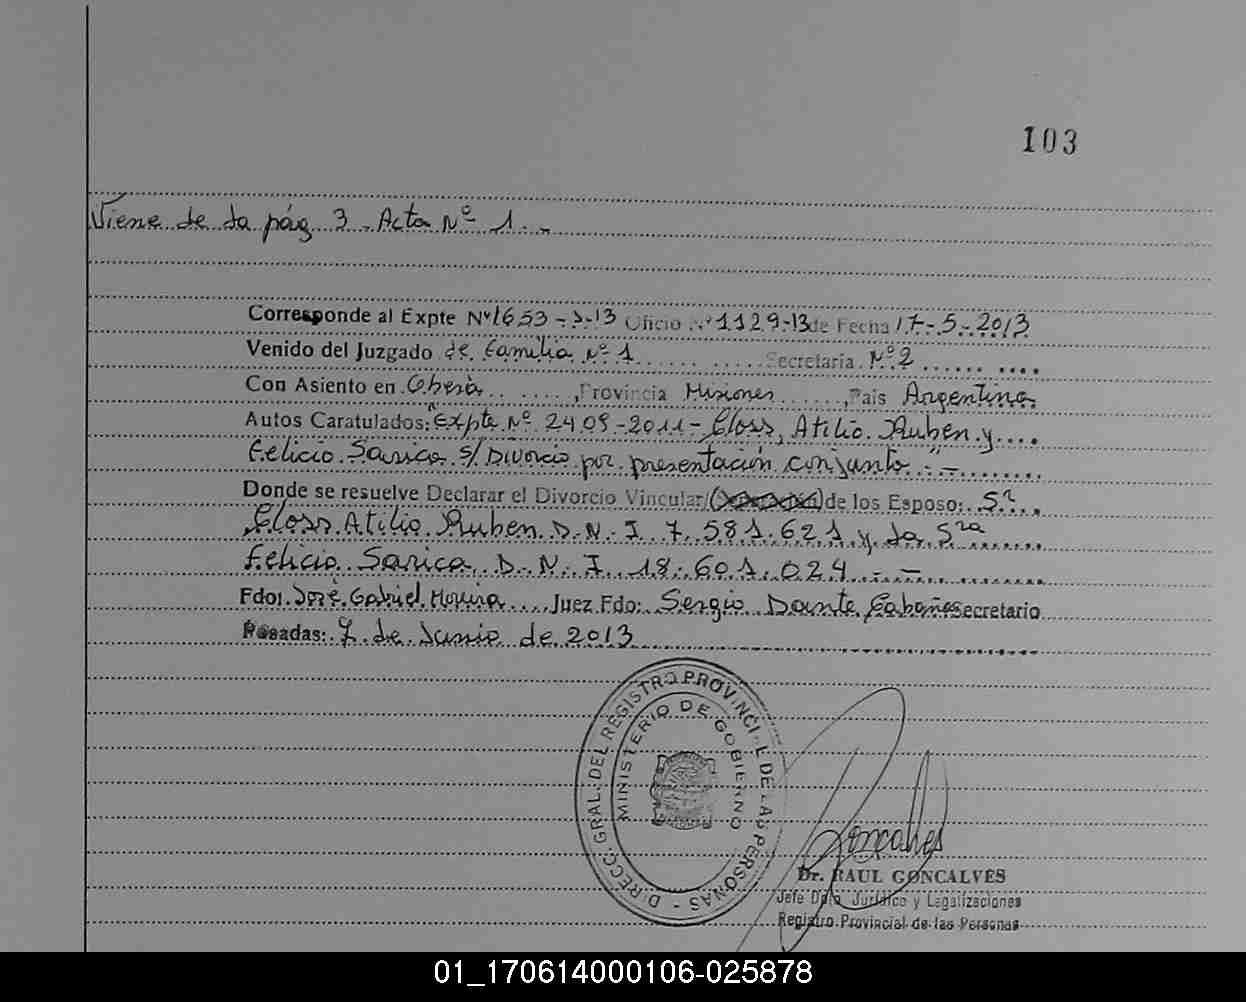 103
Viene de la pág 3 - Acta Nº 1. -
Corresponde al Expte Nº 1653-J-13 Oficio Nº 1129-13 de Fecha 17-5-2013
Venido del Juzgado de Familia Nº 1 Secretaria Nº 2
Con Asiento en Oberá, Provincia Misiones, Pais Argentina
Autos Caratulados: "Expte Nº 2409-2011- Closs, Atilio Ruben y
Felicio Sarica S/ Divorcio por presentación conjunta" . -
Donde se resuelve Declarar el Divorcio Vincular/( ) de los Esposo: Sr
Closs Atilio Ruben D.N.I 7.581.621 y la Sra
Felicio Sarica D.N.I 18.601.024 . -
Fdo: José Gabriel Moreira Juez Fdo: Sergio Dante Cabañas Secretario
Posadas: 7 de Junio de 2013
DIRECC. GRAL. DEL REGISTRO PROVINCIAL DE LAS PERSONAS -
MINISTERIO DE GOBIERNO
Goncalves
Dr. RAUL GONCALVES
Jefe Dpto. Jurídico y Legalizaciones
Registro Provincial de las Personas
01_170614000106-025878